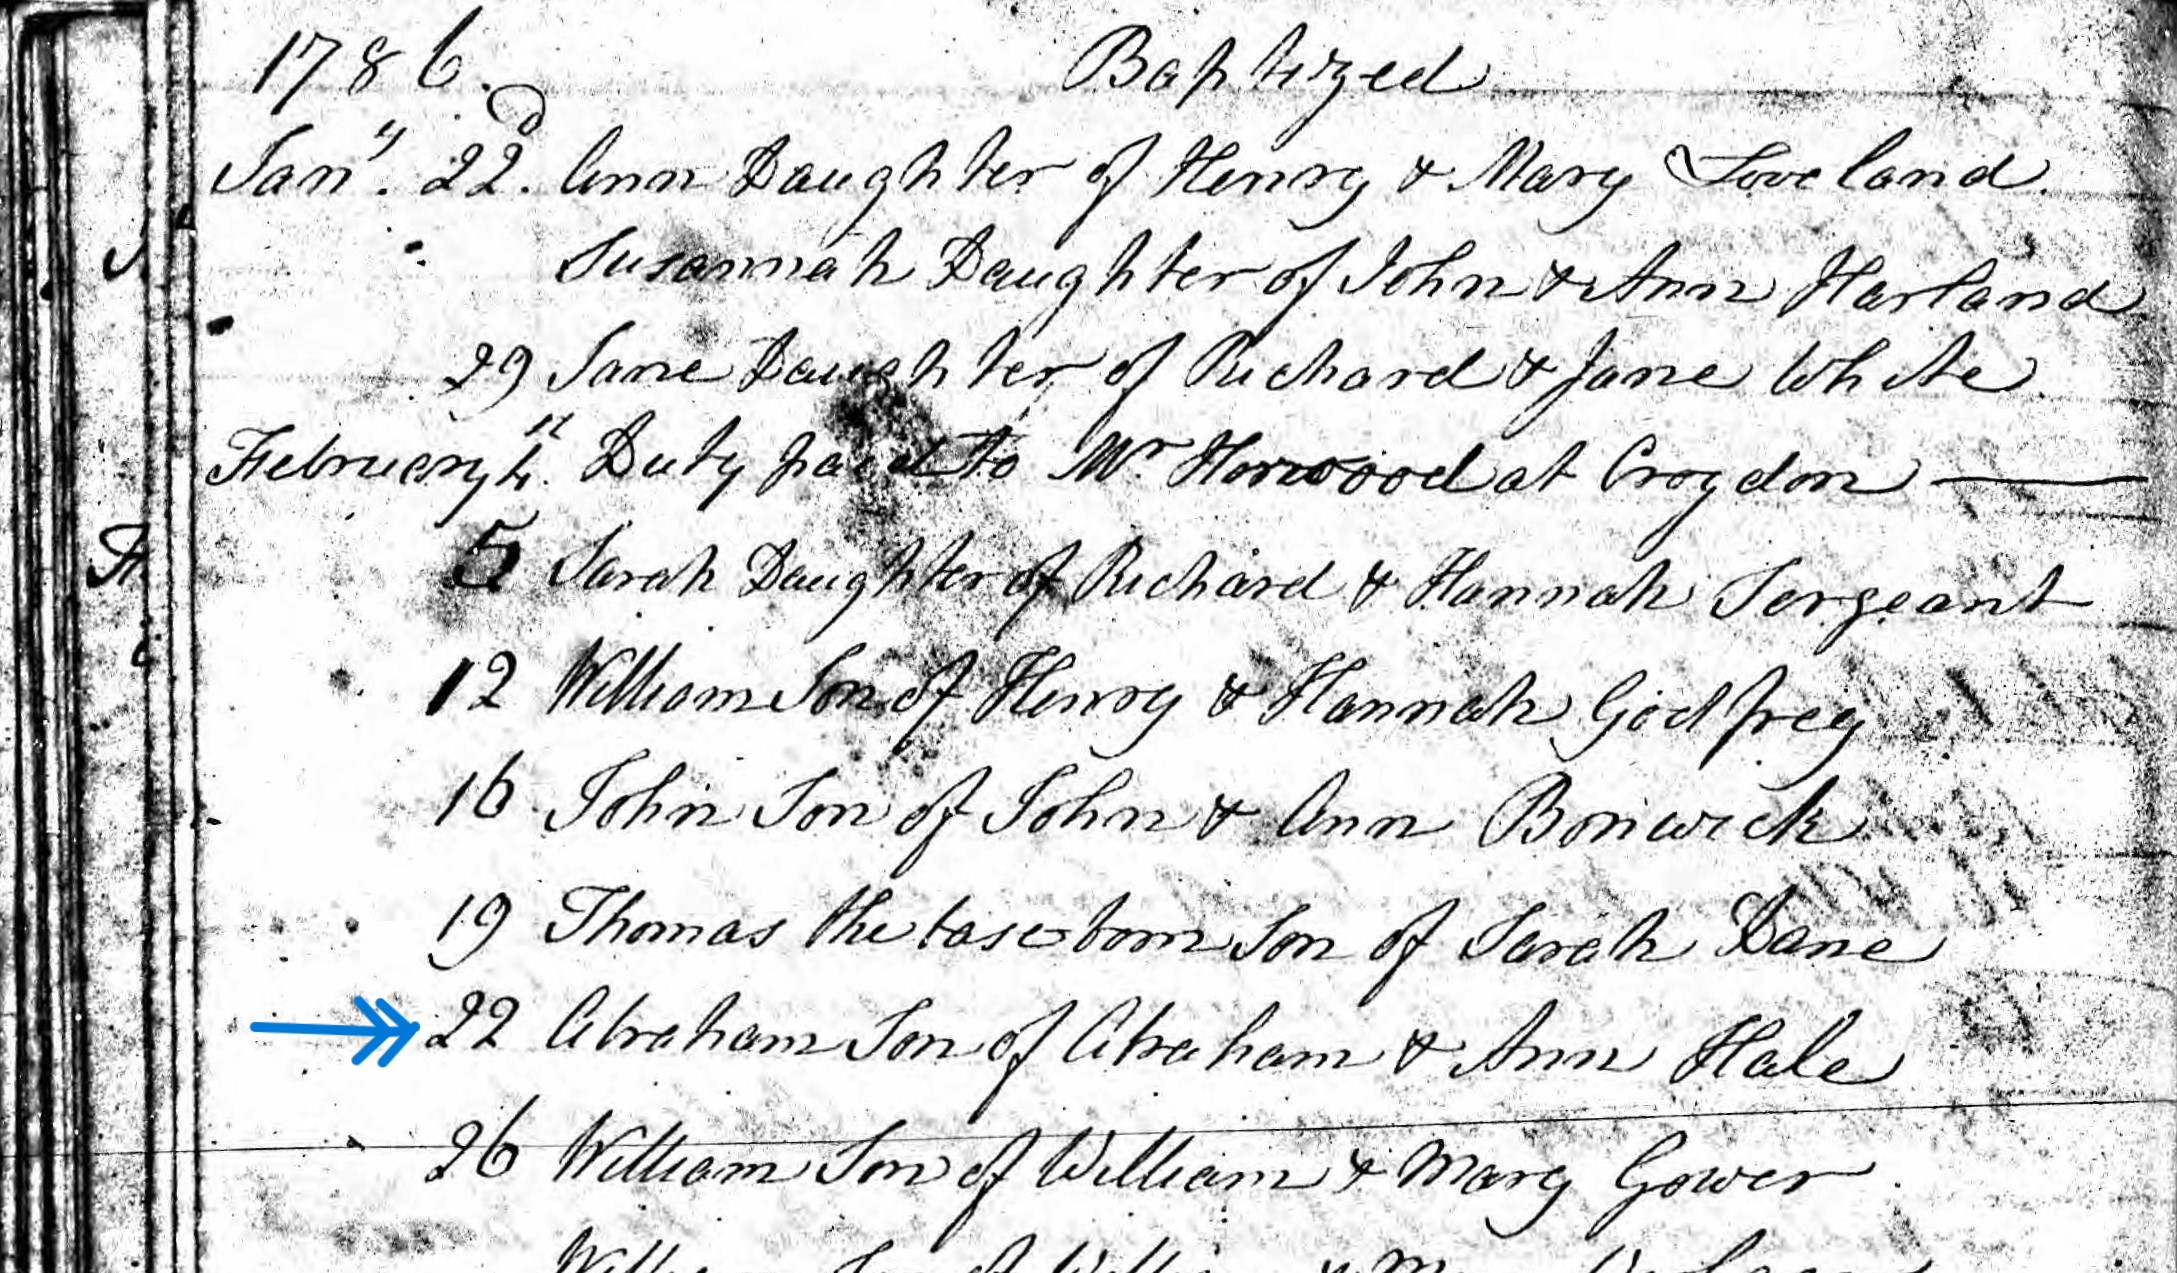 1786. Baptized
Jany. 22d. Ann Daughter of Henry & Mary Loveland.
Susannah Daughter of John & Ann Harland
29 Jane Daughter of Richard & Jane White.
February Duty paid to Mr Horwood at Croydon —
5 Sarah Daughter of Richard & Hannah Sergeant
12 William Son of Henry & Hannah Godfrey
16 John Son of John & Ann Bonwick
19 Thomas the base born Son of Sarah Dane
22 Abraham Son of Abraham & Ann Hale
26 William Son of William & Mary Gower
William Son of William &